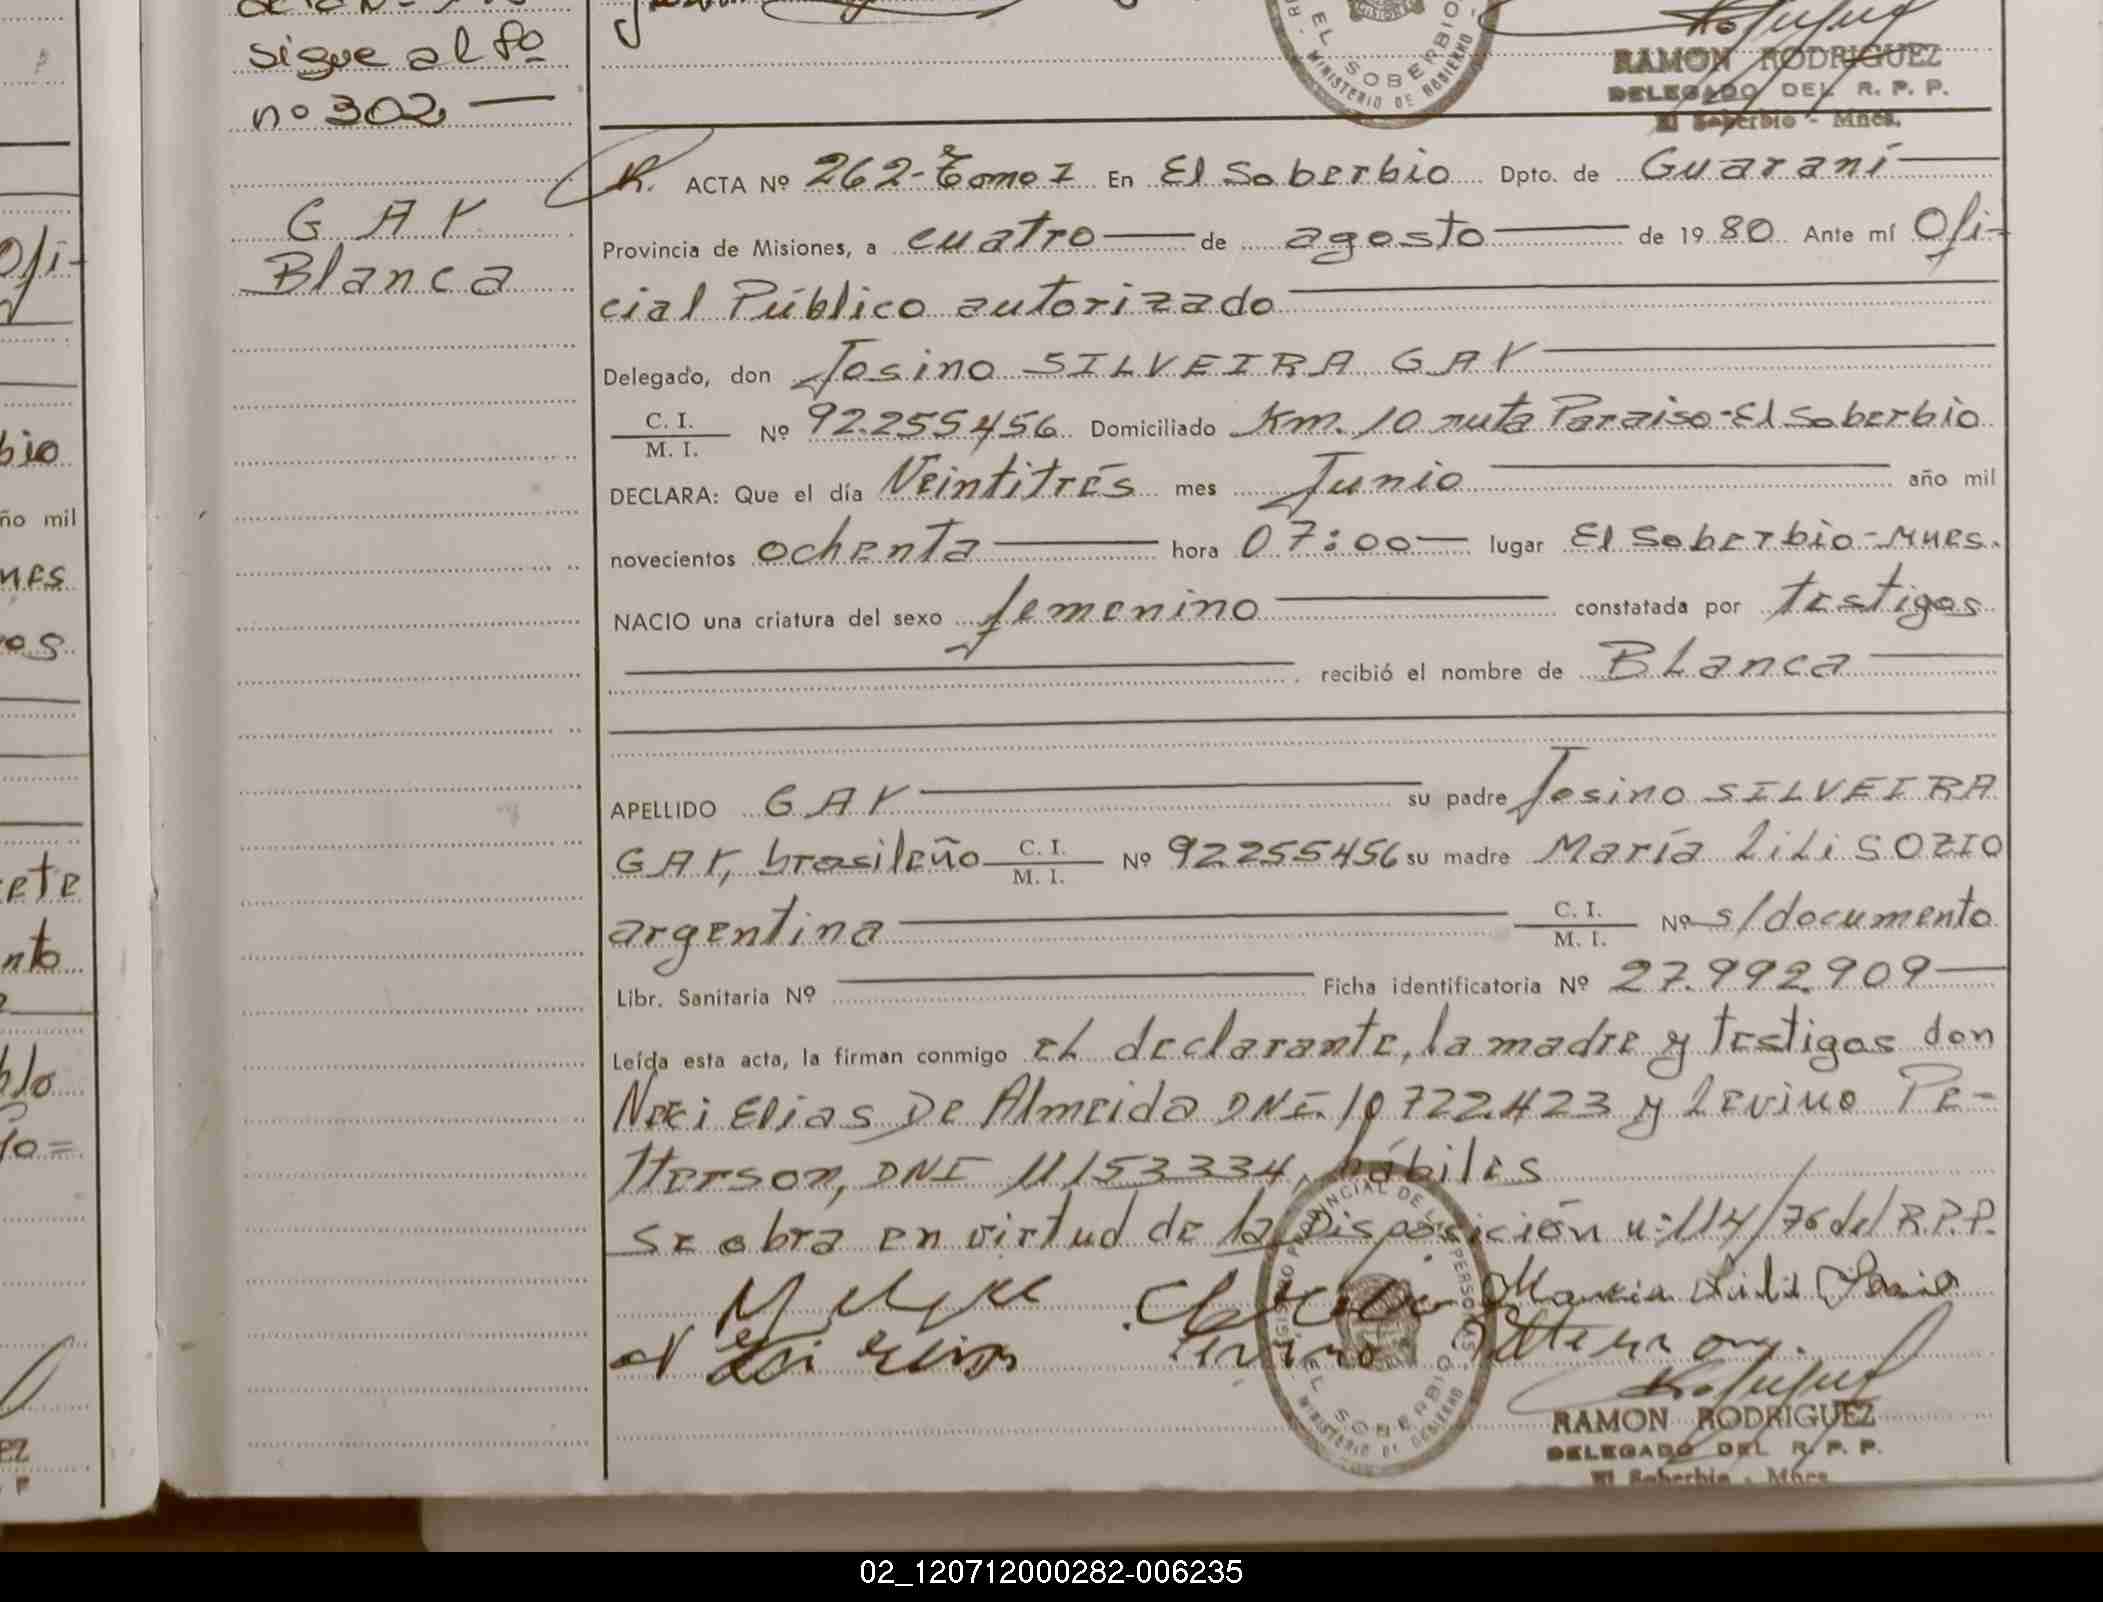 sigue al fº
nº 302
RAMON RODRIGUEZ
DELEGADO DEL R. P. P.
El Soberbio - Mnes.
EL SOBERBIO
MINISTERIO DE GOBIERNO
GAY
Blanca
R. ACTA Nº 262-Tomo I En El Soberbio Dpto. de Guaraní
Provincia de Misiones, a cuatro de agosto de 1980 Ante mí Ofi-
cial Público autorizado
Delegado, don Josino SILVEIRA GAY
C. I.
M. I. Nº 92.255456 Domiciliado Km. 10 ruta Paraiso-El Soberbio
DECLARA: Que el día Veintitrés mes Junio año mil
novecientos ochenta hora 07:00 lugar El Soberbio-Mnes.
NACIO una criatura del sexo femenino constatada por testigos
recibió el nombre de Blanca
APELLIDO GAY su padre Josino SILVEIRA
GAY, brasileño C. I. M. I. Nº 92255456 su madre María Lili SOZIO
argentina C. I. M. I. Nº s/documento
Libr. Sanitaria Nº Ficha identificatoria Nº 27.992.909
Leída esta acta, la firman conmigo el declarante, la madre y testigos don
Elias De Almeida DNI. 10.722.423 y Levino Pe-
tterson, DNI 11153334, hábiles
se obra en virtud de la Disposición n:114/76 del R.P.P.
Maria Lili
Elias Levino Petterson
EL SOBERBIO
MINISTERIO DE GOBIERNO
RAMON RODRIGUEZ
DELEGADO DEL R. P. P.
El Soberbio - Mnes.
02_120712000282-006235